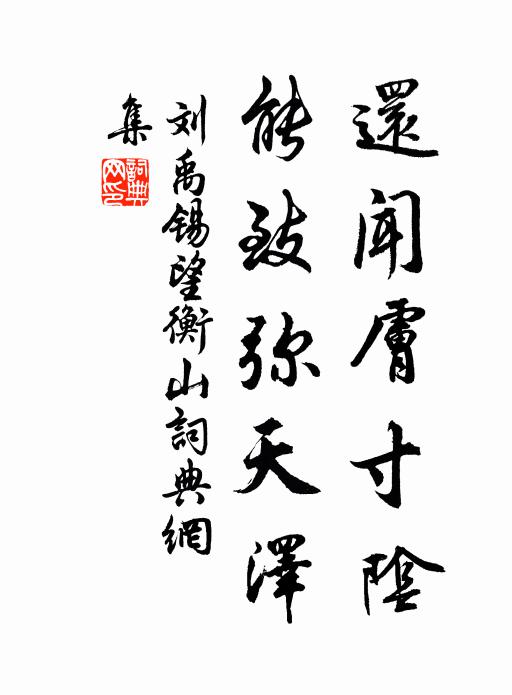 還闻膚寸陰
能致弥天澤
刘禹锡望衡山詞典網
集
詞典网印